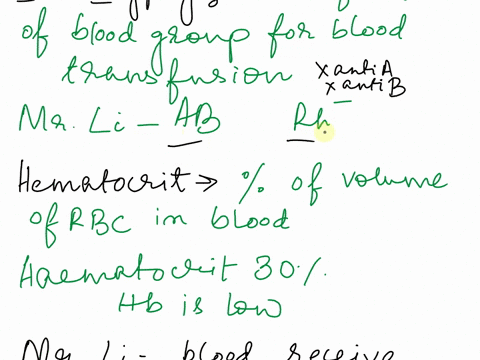 of blood group for blood
transfusion x anti A
x anti B
Mr. Li - AB Rh -
Hematocrit → % of volume
of RBC in blood
Haematocrit 30%.
Hb is low
Mr. Li - blood receive